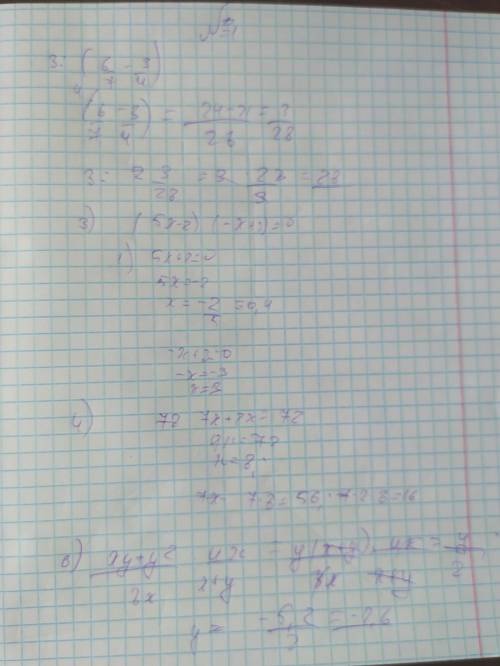 №1
3 : (6/7 - 3/4)
(6/7 - 3/4) = 24-21/28 = 3/28
3 : 3/28 = 3 28/3 = 28
3) (5x-2) (-x+3)=0
1) 5x+2=0
5x=-2
x = -2/5 = 0,4
-x+3=0
-x=-3
4) 72 7x+2x=72
9x=72
x=8
7x 7·8=56, 2·8=16
6) xy+y²/ 4x/x+y = y(x+y) 4x/x+y = y/2
y = -5,2/2 = -2,6